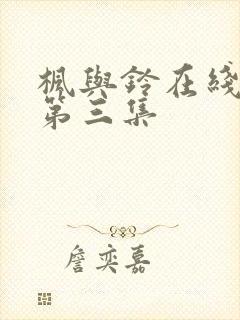 楓與鈴在綫
第三集
詹奕嘉